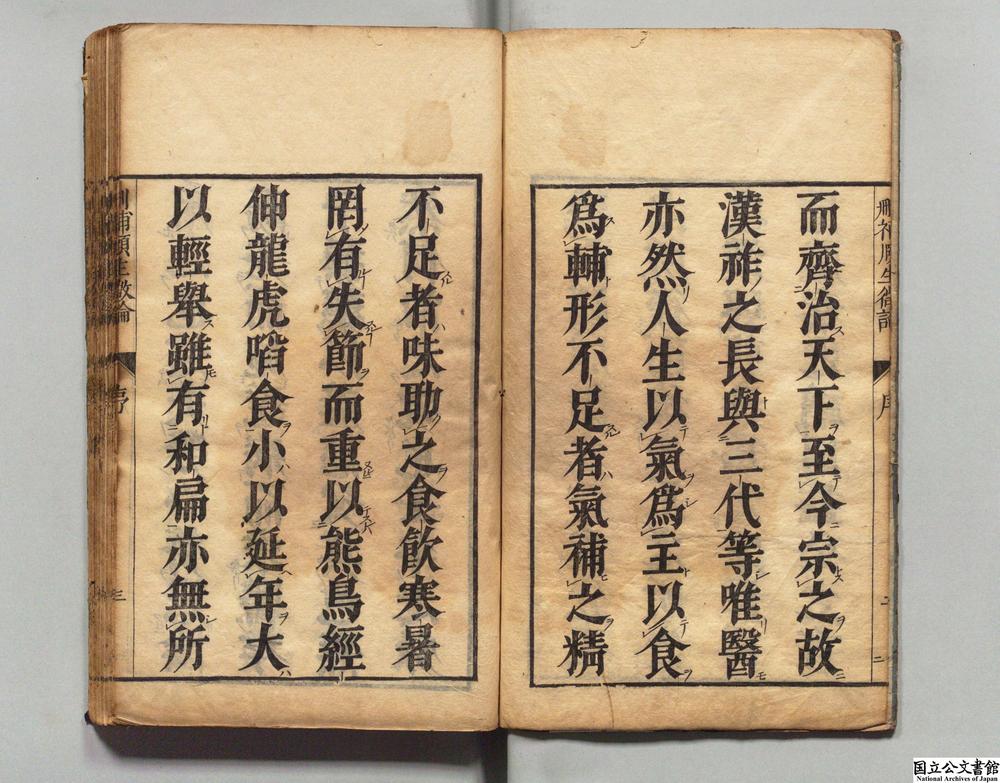 而齊治天下至今宗之故
漢祚之長與三代等唯醫
亦然人生以氣爲主以食
爲輔形不足者氣補之精
不足者味助之食飲寒暑
罔有失節而重以熊鳥經
伸龍虎㗖食小以延年大
以輕舉雖有和扁亦無所
序
三
国立公文書館
National Archives of Japan